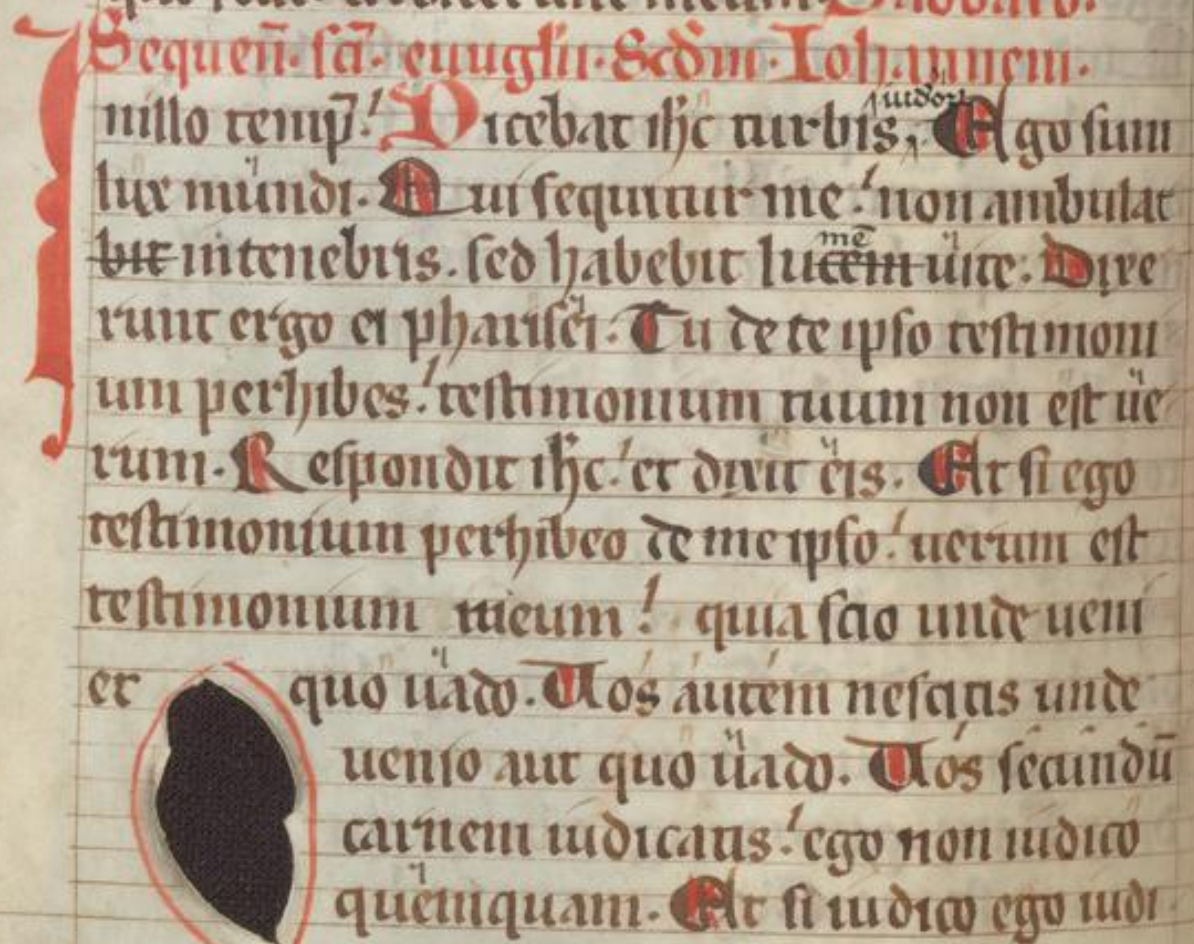 Sequen̄. sc̄a. euuḡlii. Scd̄m. Iohannem.
In illo temp̄. Dicebat ih̄c turbis iudeoꝝ. Ego sum
lux mundi. Qui sequitur me. non ambulat
bit in tenebris. sed habebit lucem mē uite. Dixe
runt ergo ei pharisei. Tu de te ipso testimoni
um perhibes. testimonium tuum non est ue
rum. Respondit ih̄c. et dixit eis. Et si ego
testimonium perhibeo de me ipso. uerum est
testimonium meum. quia scio unde ueni
et quo uado. Uos autem nescitis unde
uenio aut quo uado. Uos secundū
carnem iudicatis. ego non iudico
quemquam. Et si iudico ego iudi